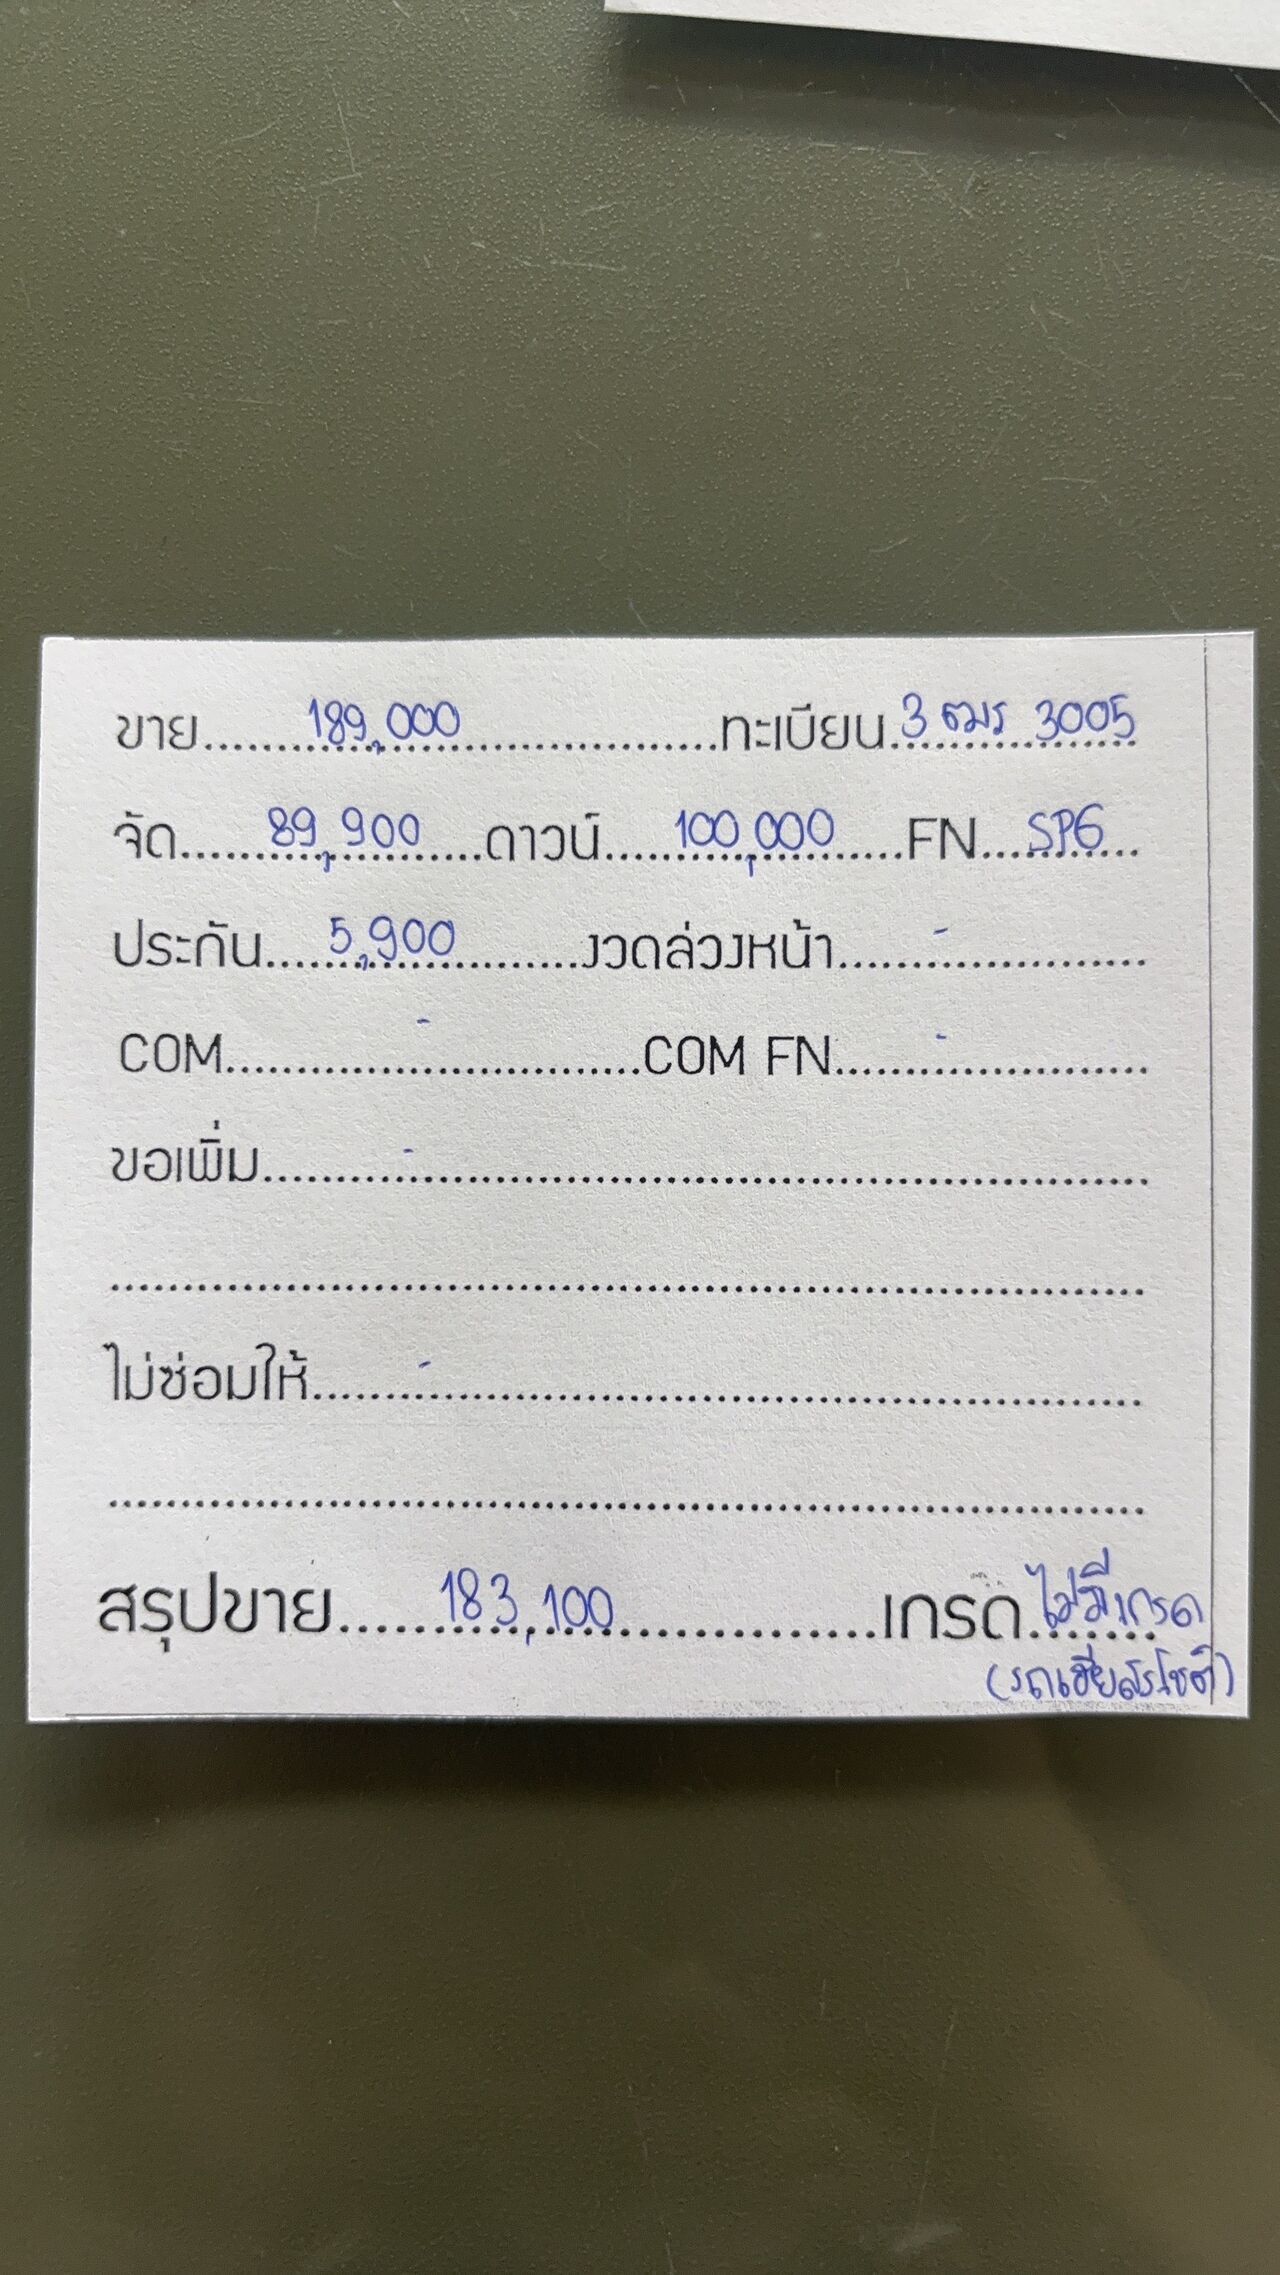 ขาย 189,000 ทะเบียน 3 ฒร 3005
จัด 89,900 ดาวน์ 100,000 FN SPG
ประกัน 5,900 งวดล่วงหน้า -
COM - COM FN -
ขอเพิ่ม -
ไม่ซ่อมให้ -
สรุปขาย 183,100 เกรด ไม่มีเกรด
(รถเฮียสรโชติ)